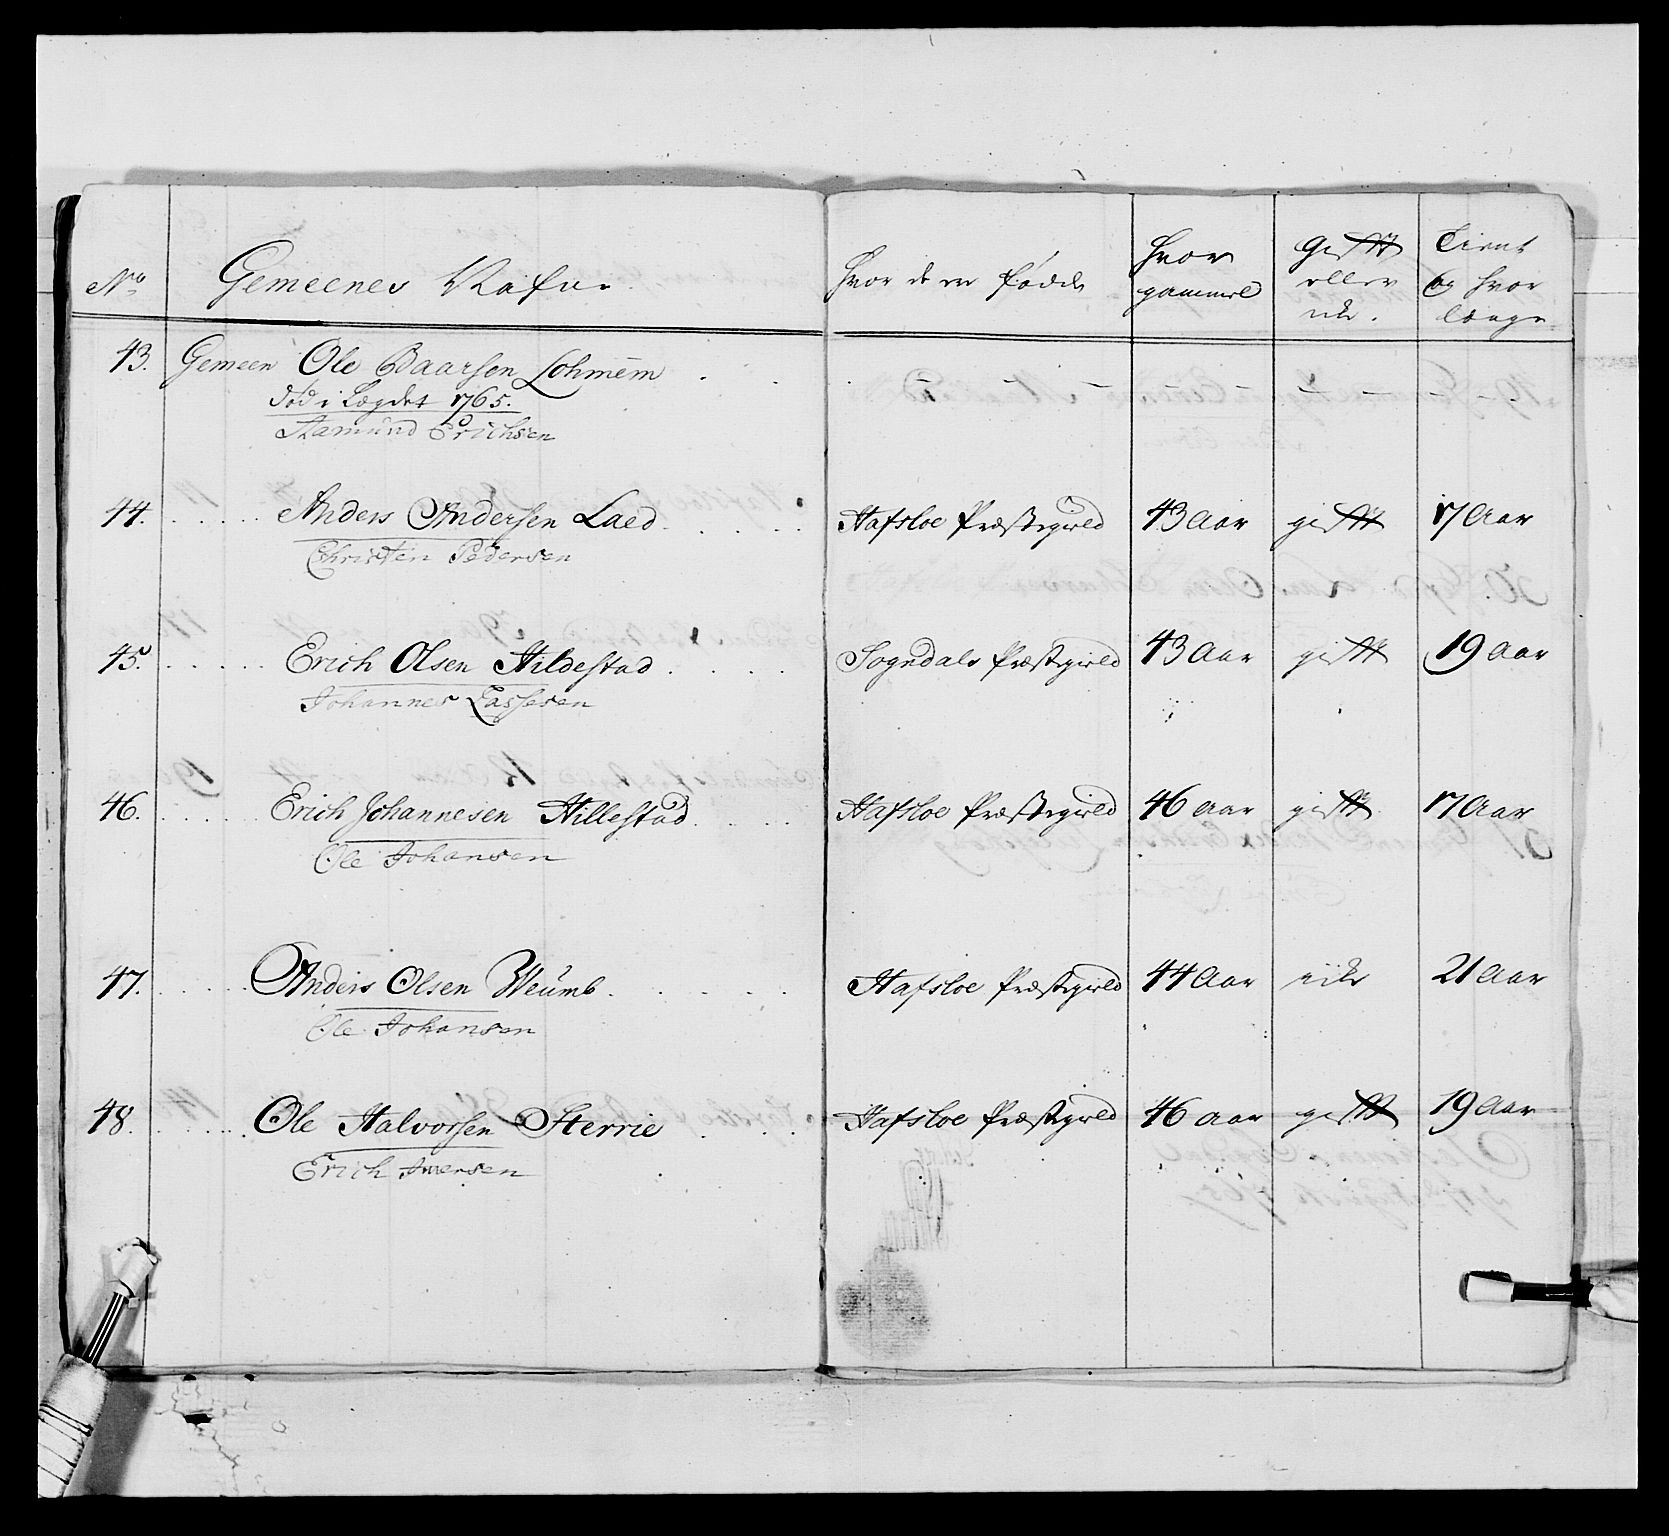 No Gemeenes Nafne Hvor de er födde Hvor gammel gift eller iike. Tient og hvor længe
43. Gemeen Ole Baarsen Lohmem
död i Lægdet 1765.
Aamund Erichsen
44. Anders Andersen Laed Hafsloe Præstegield 43 Aar gift 17 Aar
Christen Pedersen
45. Erich Olsen Hildestad Sogndals Præstegield 43 Aar gift 19 Aar
Johannes Lassesen
46. Erich Johannesen Hillestad Hafsloe Præstegield 46 Aar gift 17 Aar
Ole Johansen
47. Anders Olsen Weumb Hafsloe Præstegield 44 Aar iike 21 Aar
Ole Johansen
48. Ole Halvorsen Sterrie Hafsloe Præstegield 46 Aar gift 19 Aar
Erich Iwersen